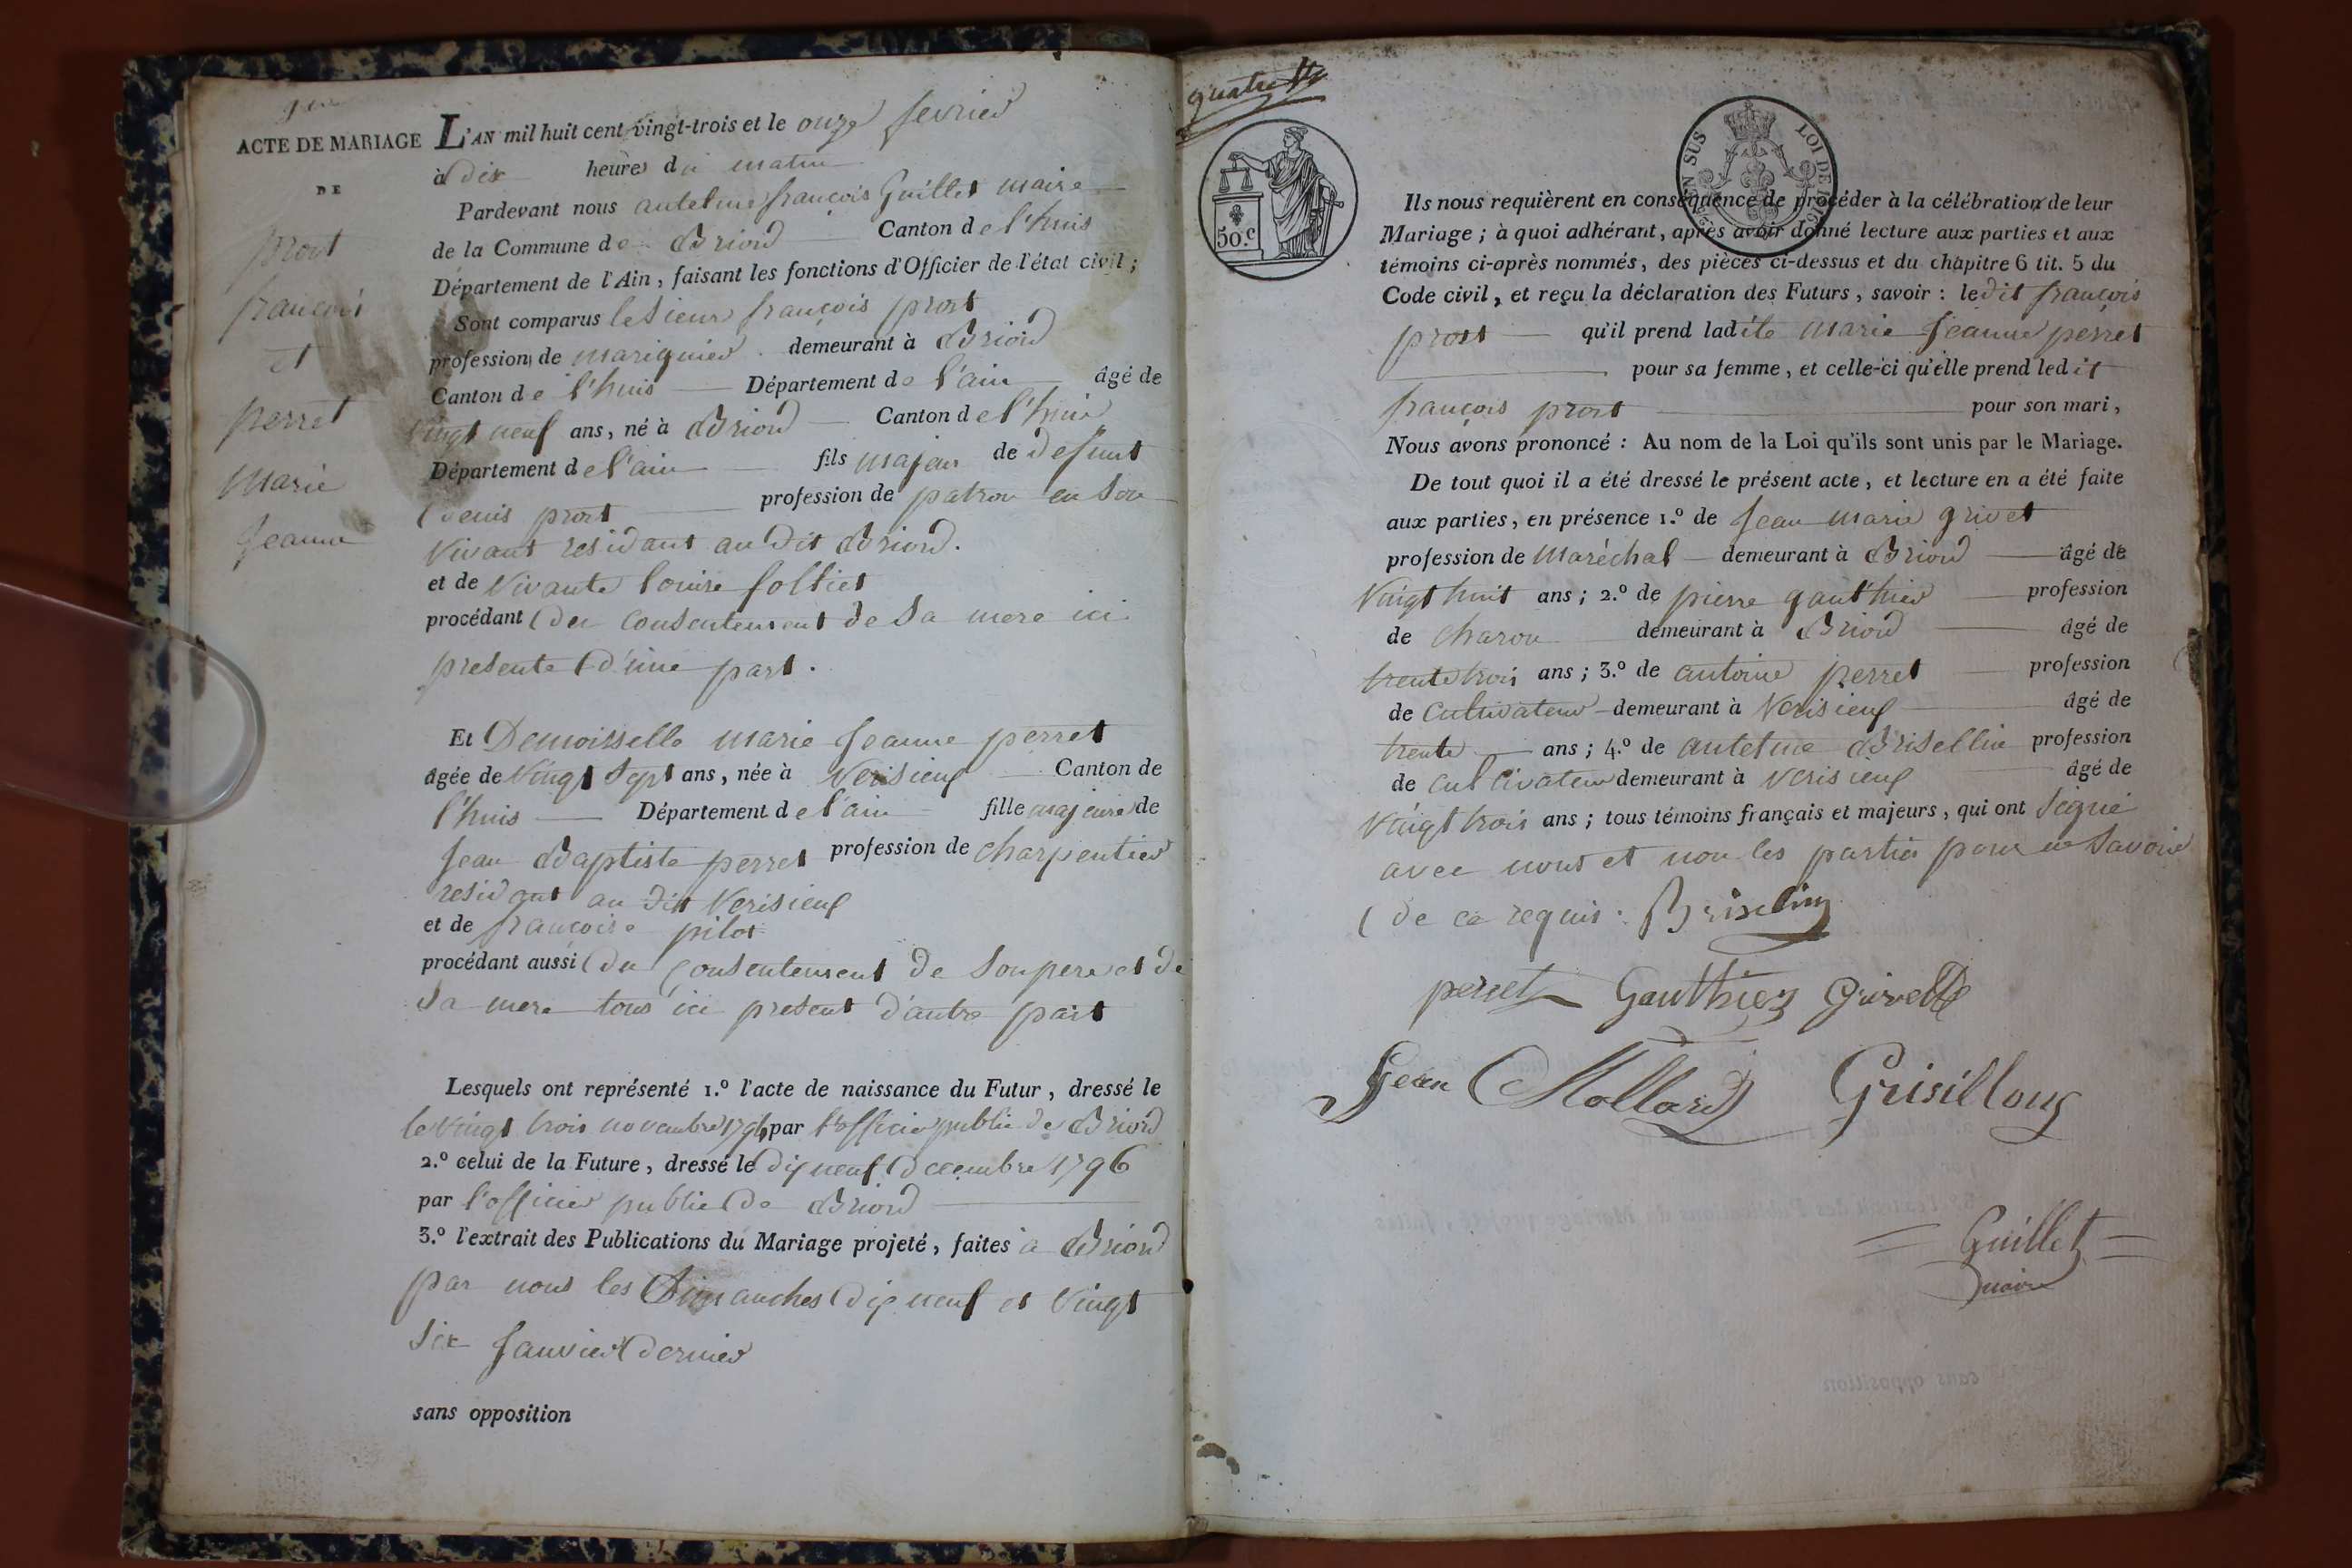 ACTE DE MARIAGE
DE
prost
françois
et
perret
Marie
Jeanne
L'AN mil huit cent vingt-trois et le onze fevrier
à dix heures du matin
Pardevant nous antelme françois Guillet maire
de la Commune de Briord Canton de l'huis
Département de l'Ain, faisant les fonctions d'Officier de l'état civil;
Sont comparus le Sieur françois prost
profession de marignier demeurant à Briord
Canton de l'huis Département de l'ain âgé de
vingt neuf ans, né à Briord Canton de l'huis
Département de l'ain fils majeur de defunt
Denis prost profession de patron en Son
Vivant residant au dit Briord.
et de Vivante louise folliet
procédant du Consentement de Sa mere ici
presente d'une part.
Et Demoisselle marie Jeanne perret
âgée de Vingt Sept ans, née à Verisieux Canton de
l'huis Département de l'ain fille majeure de
Jean Baptiste perret profession de charpentier
residant au dit Verisieux
et de françoise pilot
procédant aussi du Consentement de Son pere et de
Sa mere tous ici present d'autre part
Lesquels ont représenté 1.º l'acte de naissance du Futur, dressé le
le Vingt trois novembre 1794 par l'officier public de Briord
2.º celui de la Future, dressé le dix neuf decembre 1796
par l'officier public de Briord
3.º l'extrait des Publications du Mariage projeté, faites a Briord
par nous les Dimanches dix neuf et Vingt
Six Janvier dernier
sans opposition
quatre
50.c
EN SUS
LOI DE 1816
Ils nous requièrent en conséquence de procéder à la célébration de leur
Mariage; à quoi adhérant, après avoir donné lecture aux parties et aux
témoins ci-après nommés, des pièces ci-dessus et du chapitre 6 tit. 5 du
Code civil, et reçu la déclaration des Futurs, savoir: ledit françois
prost qu'il prend ladite Marie Jeanne perret
pour sa femme, et celle-ci qu'elle prend ledit
françois prost pour son mari,
Nous avons prononcé: Au nom de la Loi qu'ils sont unis par le Mariage.
De tout quoi il a été dressé le présent acte, et lecture en a été faite
aux parties, en présence 1.º de Jean marie grivet
profession de Maréchal demeurant à Briord âgé de
Vingt huit ans; 2.º de pierre gauthier profession
de charon demeurant à Briord âgé de
trente trois ans; 3.º de antoine perret profession
de Cultivateur demeurant à Verisieux âgé de
trente ans; 4.º de antelme Brisellin profession
de cultivateur demeurant à Verisieux âgé de
Vingt trois ans; tous témoins français et majeurs, qui ont Signé
avec nous et non les parties pour ne Savoir
de ce requis. Briselin
perret Gauthier Grivet
Jean Mollard Grisillong
Guillet
maire